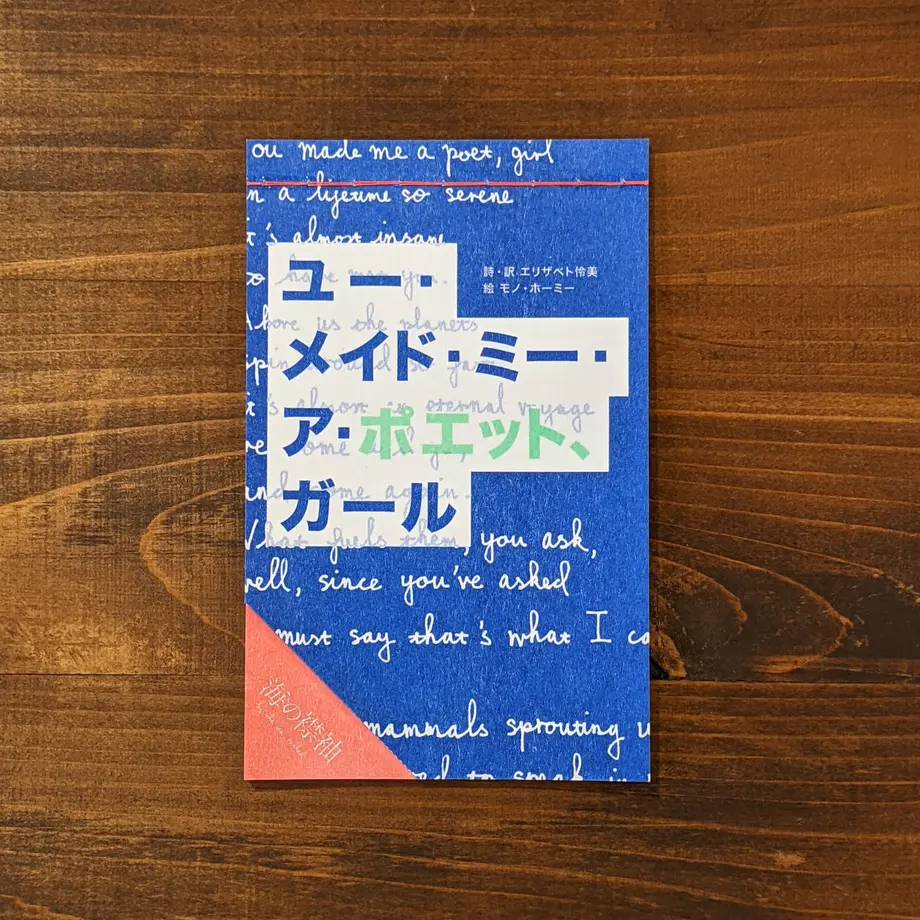 ou made me a poet, girl
n a lifetime so serene
t's almost insane
to have met you.
Above us the planets
spin around so
t's almost an eternal voyage
we come
and come again.
What fuels them, you ask,
well, since you've asked
must say that's what I ca
mammals sprouting u
to speak in
ユー・
メイド・ミー・
ア・ポエット、
ガール
詩・訳 エリザベト怜美
絵 モノ・ホーミー
海の襟袖